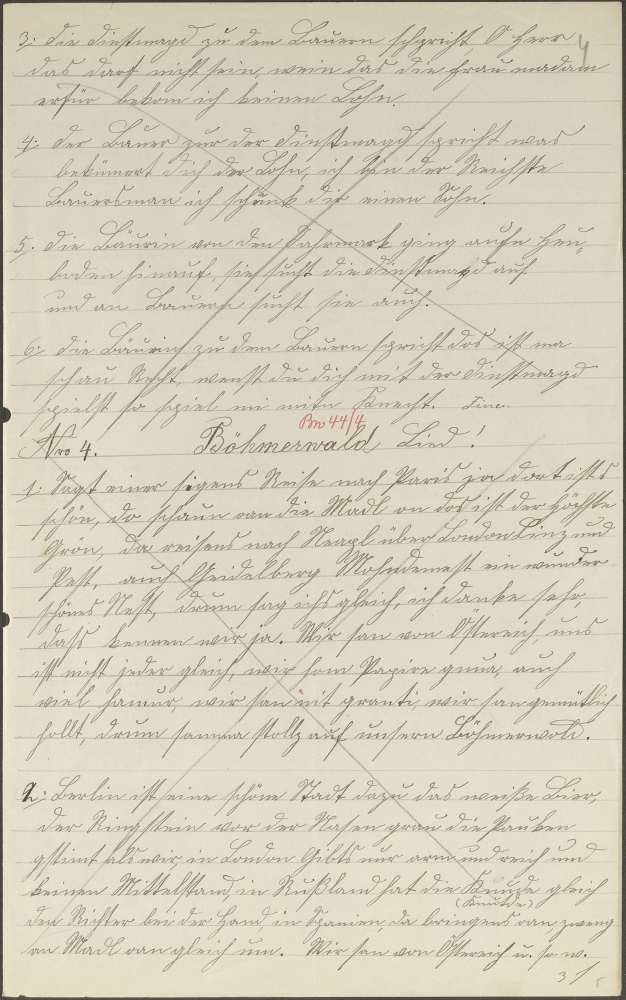 3: Die Dienstmagd zu dem Bauern schpricht, O Herr 4
das darf nicht sein, wein das die frau madam
erfür bekom ich keinen Lohn.
4: Der Bauer zur der Dienstmagd spricht was
bekümert dich der Lohn, ich bin der Reichste
Bauersman ich schänk dir einen Sohn.
5. Die Bäurin von den Jahrmark ging aufn Heu„
boden hinauf, sie sucht die Dienstmagd auf
und an Bauern sucht sie auch.
6: Die Bäurin zu dem Bauern spricht dos ist ma
schau Recht, wenst du dich mit der Dienstmagd
spielst so spiel mi mitn Knecht. Fine.
Bw 44/4
Nro 4. Böhmerwald Lied!
1: Sagt einer sigens Reise nach Paris ja dort ists
schön, do schaun oan die Madl on dos ist der höchste
Grön, da reisens nach Neapl über London Linz und
Pest, auch Heidelberg Mohndenest ein wunder
schönes Nest, drum sag ichs gleich, ich danke sehr,
dass kennen wir ja. Wir san von Östereich, uns
ist nicht jeder gleich, wir hom Papire gnua, auch
viel hamur, wir san nit granti, wir san gemütlich
hollt, drum samma stollz auf unsern Böhmerwold.
2: Berlin ist eine schöne Stadt dazu das weiße Bier,
der Ringstein vor der Nasen grau die Pauken
gstimt als wir, in London Gibts nur arm und reich und
keinen Mittelstand, in Rußland hat die Knuze gleich
(Knutde)
den Richter bei der Hand, in Spanien, da bringens oan, zweng
an Madl oan gleich um. Wir san von Östereich u. so w.
31